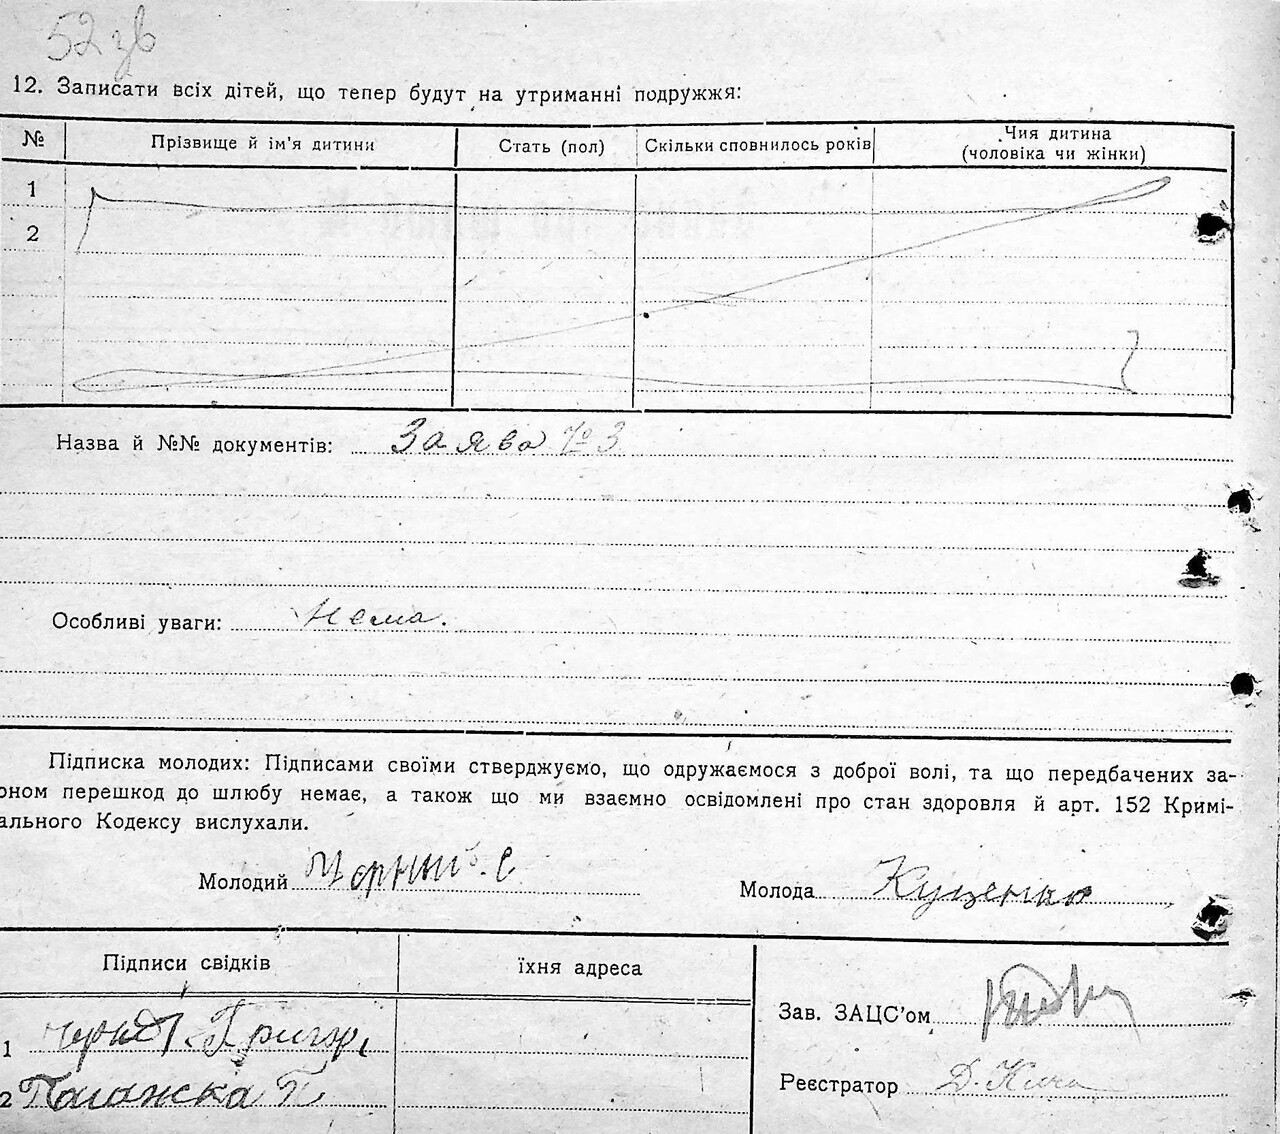 52 зв
12. Записати всіх дітей, що тепер будут на утриманні подружжя:
№ Прізвище й ім'я дитини Стать (пол) Скільки сповнилось років Чия дитина (чоловіка чи жінки)
1
2
Назва й №№ документів: Заява № 3
Особливі уваги: Нема.
Підписка молодих: Підписами своїми стверджуємо, що одружаємося з доброї волі, та що передбачених за-
оном перешкод до шлюбу немає, а також що ми взаємно освідомлені про стан здоровля й арт. 152 Кримі-
ального Кодексу вислухали.
Молодий Чорний. Є Молода Куценко
Підписи свідків їхня адреса
Зав. ЗАЦС'ом
1 Григорі
2 П
Реєстратор Д.